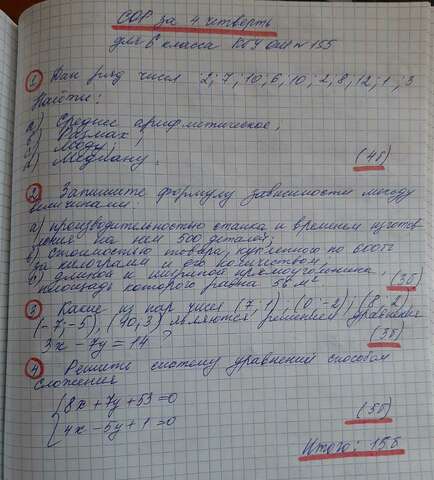 СОР за 4 четверть
для 6 класса КГУ ОШ № 155
1 Дан ряд чисел : 2; 7; 10; 6; 10; 2; 8; 12; 1; 3
Найти:
а) Среднее арифметическое;
в) Размах;
с) Моду;
д) Медиану. (4б)
2 Запишите формулу зависимости между
величинами:
а) производительностью станка и временем изготов
ления на нем 500 деталей;
в) Стоимостью товара, купленного по 600тг
за килограмм и его количеством,
с) длиной и шириной прямоугольника,
площадь которого равна 56 м² (3б)
3 Какие из пар чисел (7; 1); (0; -2); (8; 2)
(-7; -5), (10; 3) являются решением уравнения
3x - 7y = 14 ? (3б)
4 Решить систему уравнений способом
сложения
{8x + 7y + 53 = 0
{4x - 5y + 1 = 0 (5б)
Итого: 15б